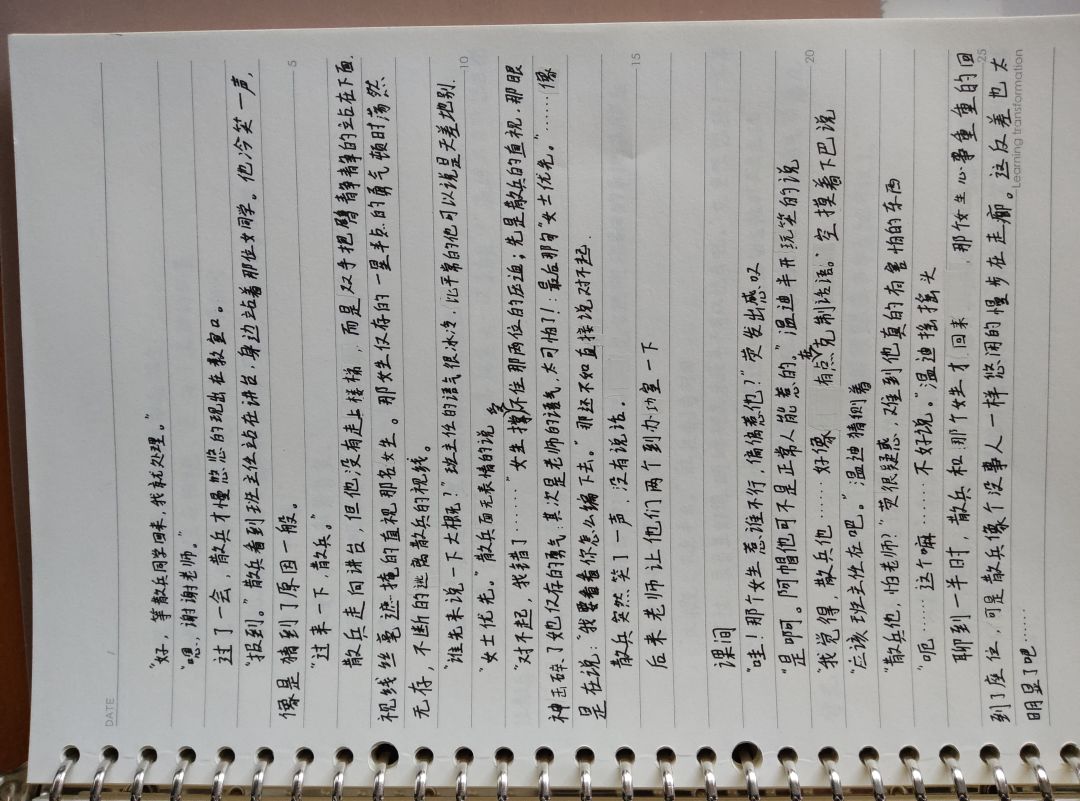 DATE
“好，等散兵同学回来，我就处理。”
“嗯，谢谢老师。”
过了一会，散兵才慢悠悠的现出在教室口。
“报到。”散兵看到班主任站在讲台，身边站着那位女同学。他冷笑一声，
像是猜到了原因一般。
“过来一下，散兵。”
散兵走向讲台，但他没有走上楼梯，而是双手把臂静静的站在下面.
视线丝毫遮掩的直视那名女生。那女生仅存的一星半点的勇气顿时荡然
无存，不断的逃离散兵的视线。
“谁先来说一下大概？”班主任的语气很冰冷，比平常的他可以说是天差地别.
“女士优先。”散兵面无表情的说
“对不起，我错了……”女生受不住那两位的压迫；先是散兵的直视，那眼
神击碎了她仅存的勇气；其次是老师的语气，太可怕了！；最后那句“女士优先。”……像
是在说：“我要看看你怎么编下去。”那还不如直接说对不起.
散兵突然笑了一声，没有说话。
后来老师让他们两个到办功室一下
课间
“哇！那个女生惹谁不行，偏偏惹他？”荧发出感叹
“是啊。阿帽他可不是正常人能惹的。”温迪半开玩笑的说
“我觉得，散兵他……好像 有点要克制话语。”空摸着下巴说
“应该班主任在吧。”温迪猜测着
“散兵他，怕老师？”荧很疑惑，难到他真的有害怕的东西
“呃……这个嘛……不好说。”温迪摇摇头
聊到一半时，散兵和那个女生才回来 ，那个女生心事重重的回
到了座位，可是散兵像个没事人一样悠闲的慢步在走廊。这反差也太
明显了吧……
5
10
15
20
25
Learning transformation